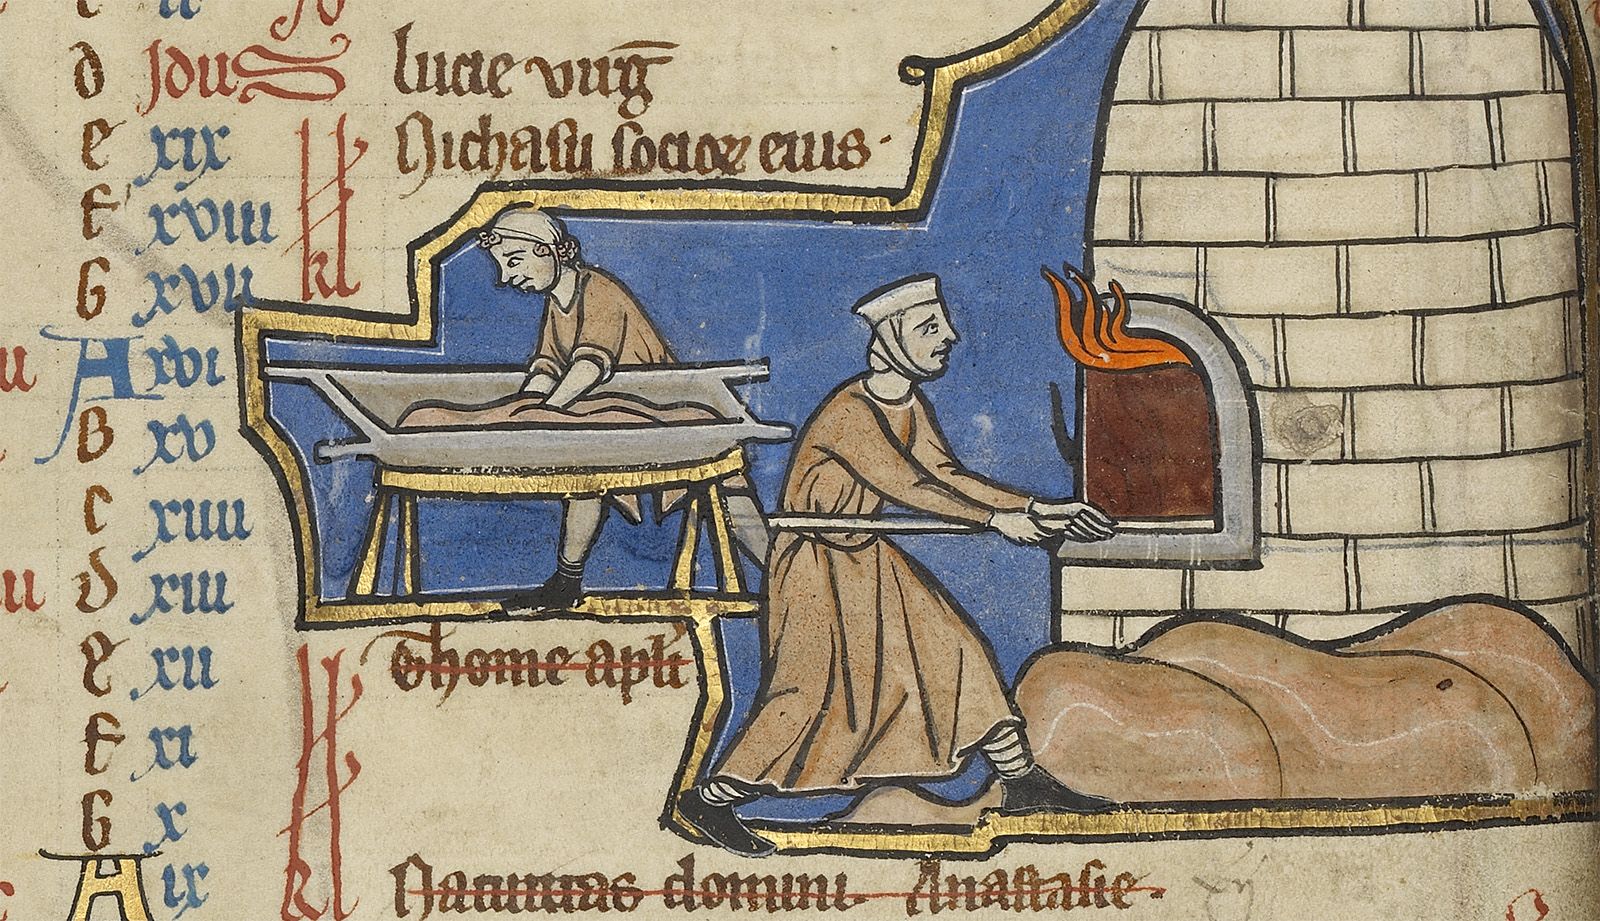 d Idus lucie virg̅
e xix kl Nichasii socior eius·
f xviii
G xvii kl
A xvi
B xv
c xiiii
d xiii
e xii kl Thome apli
f xi
G x
A ix kl Natiuitas domini. Anastasie·